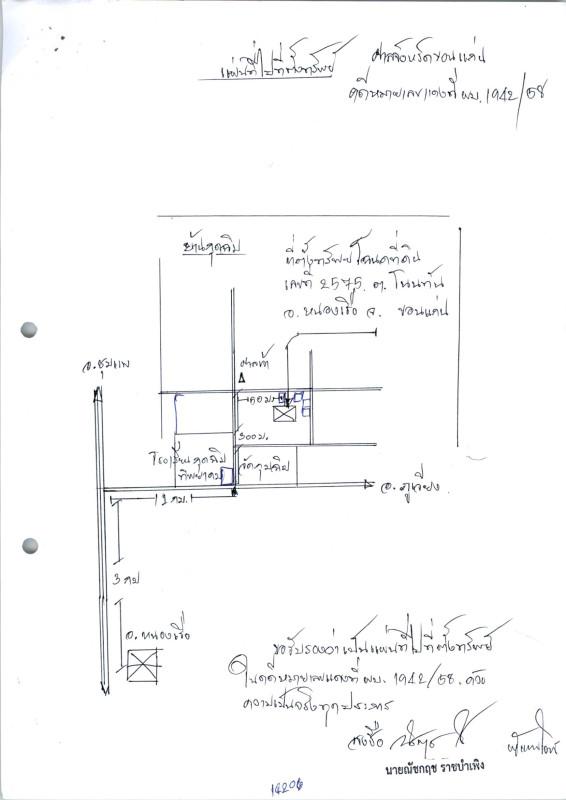 แผนที่ไปที่ตั้งทรัพย์
ศาลจังหวัดขอนแก่น
คดีหมายเลขแดงที่ ผบ. 1942/58
บ้านกุดฉิม
ที่ตั้งทรัพย์โฉนดที่ดิน
เลขที่ 2575 ต. โนนทัน
อ. หนองเรือ จ. ขอนแก่น
อ.ชุมแพ
ศาลเจ้า
300 ม.
โรงเรียนกุดฉิม
พิทยาคม
12 กม.
อ. ภูเวียง
3 กม
อ. หนองเรือ
ขอรับรองว่าเป็นแผนที่ไปที่ตั้งทรัพย์
ในคดีหมายเลขแดงที่ ผบ. 1942/58. ด้วย
ความเป็นจริงทุกประการ
ลงชื่อ
นายณัชกฤช ราชบำเพิง
14206